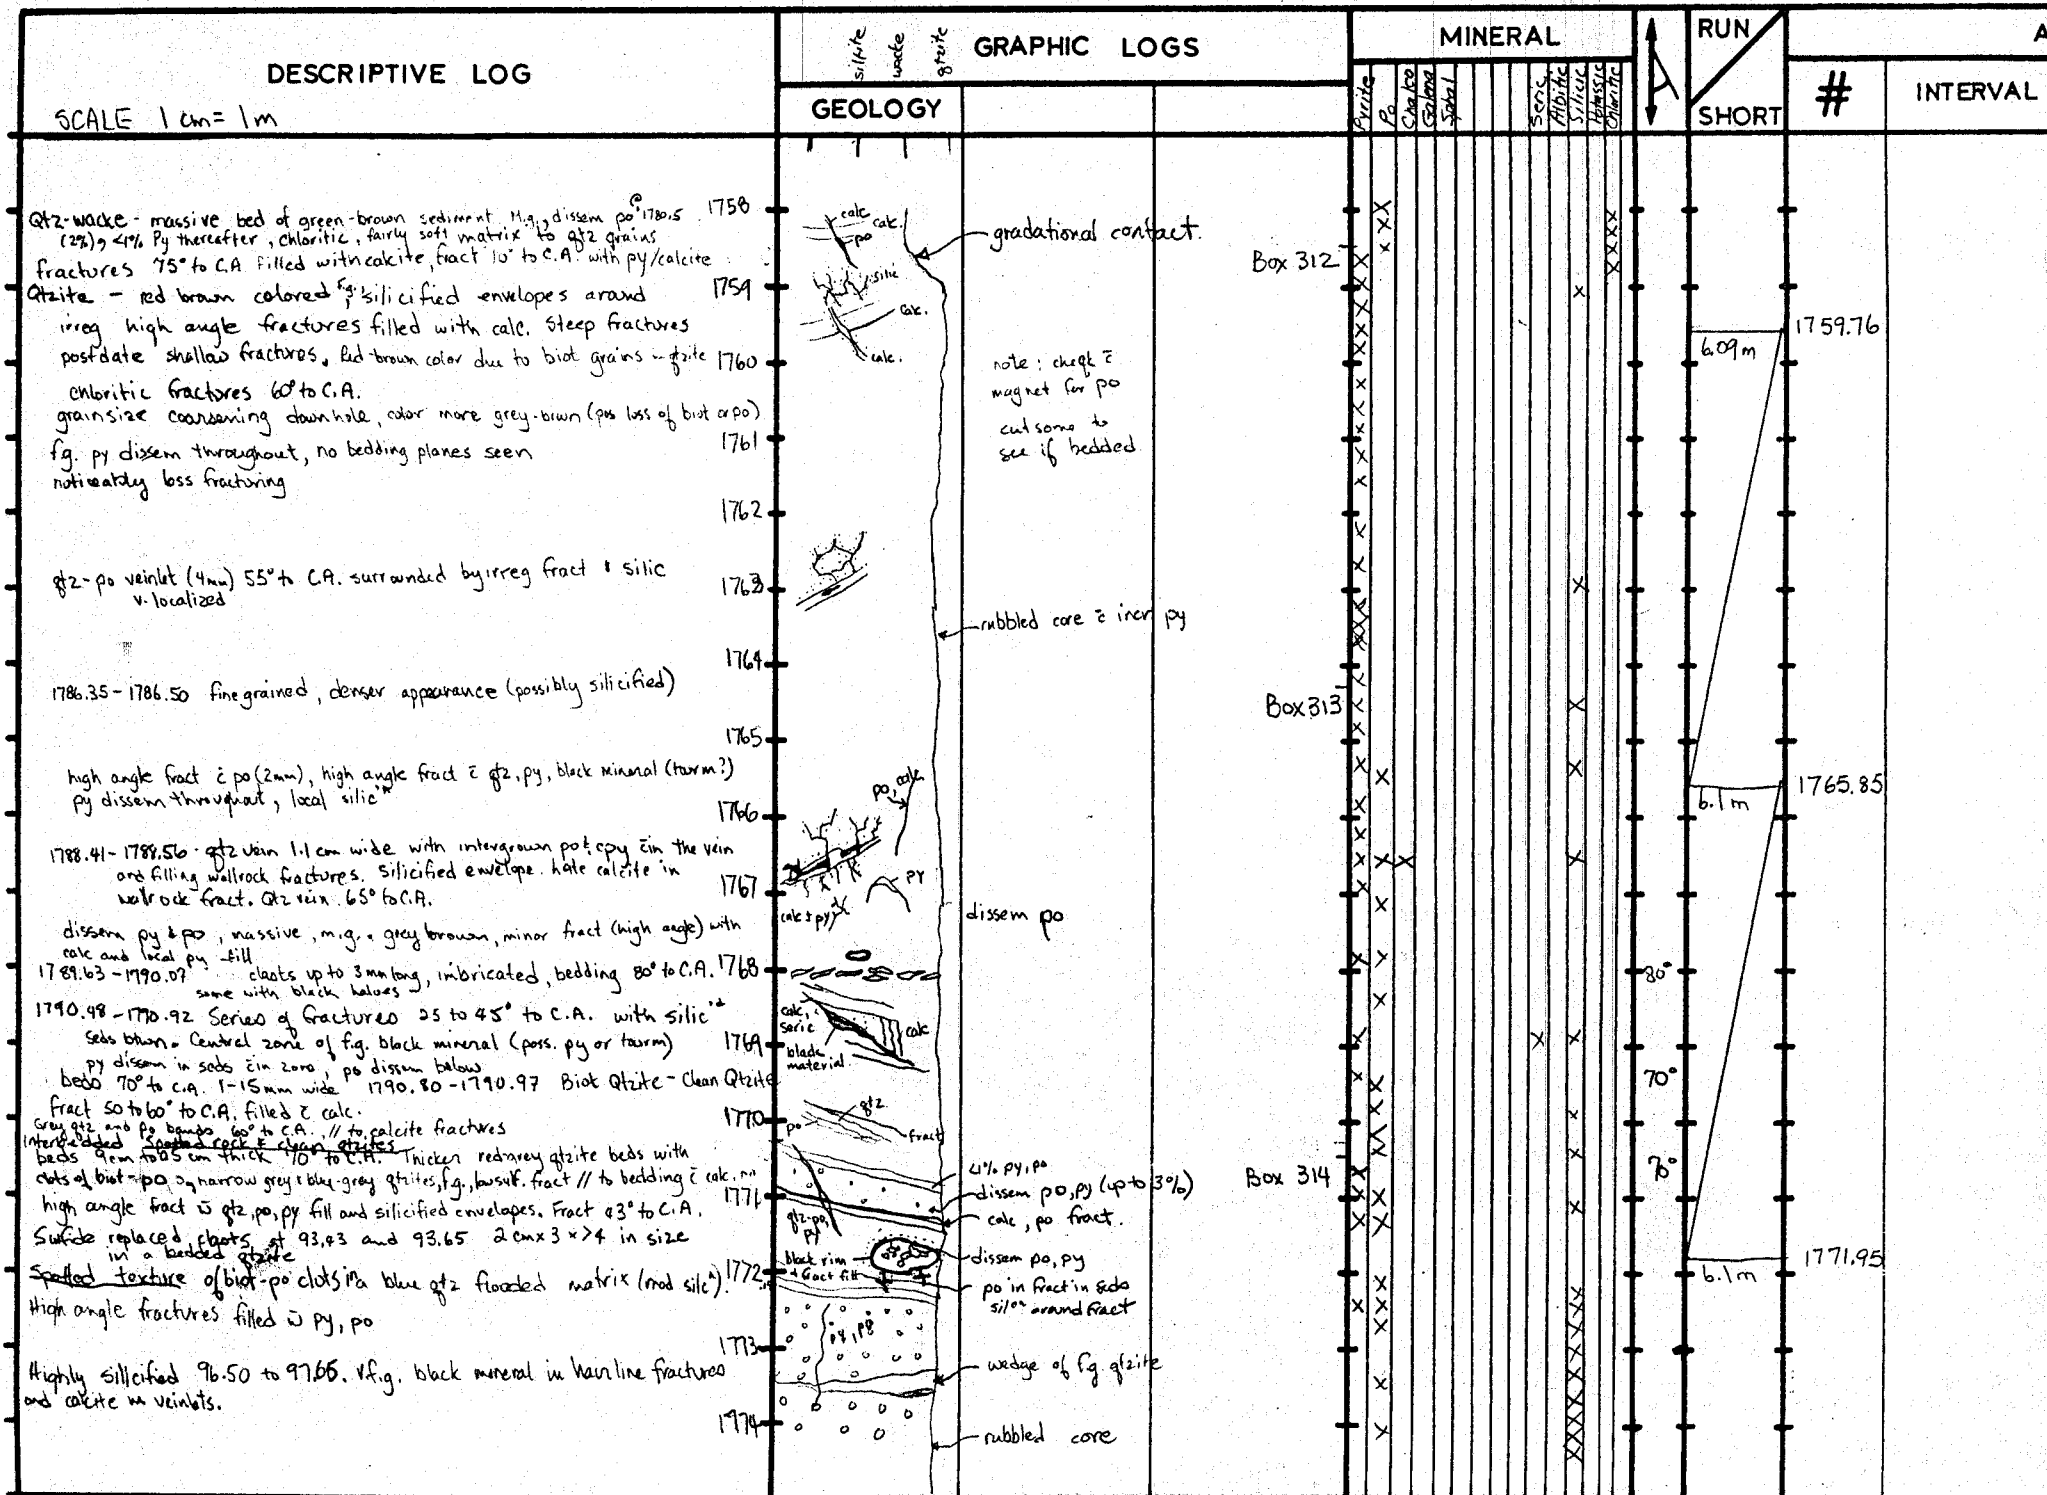 DESCRIPTIVE LOG
SCALE 1 cm = 1 m
siltite
wacke
qtzite
GRAPHIC LOGS
GEOLOGY
MINERAL
Pyrite
Po
Chalco
Galena
Sphal
Seric
Albitic
Silicic
Potassic
Chloritic
A
RUN
SHORT
#
A
INTERVAL
Qtz-wacke - massive bed of green-brown sediment. M.g., dissem po @ 1780.5
(2%), <1% Py thereafter, chloritic, fairly soft matrix to qtz grains
fractures 75° to C.A. filled with calcite, fract 10° to C.A. with py/calcite
Qtzite - red brown colored, f.g. silicified envelopes around
irreg high angle fractures filled with calc. Steep fractures
postdate shallow fractures. Red-brown color due to biot grains in qtzite
chloritic fractures 60° to C.A.
grainsize coarsening downhole, color more grey-brown (pos loss of biot or po)
f.g. py dissem throughout, no bedding planes seen
noticeably less fracturing
qtz-po veinlet (4mm) 55° to C.A. surrounded by irreg fract & silic
v. localized
1786.35-1786.50 fine grained, denser appearance (possibly silicified)
high angle fract c̄ po (2mm), high angle fract c̄ qtz, py, black mineral (tourm?)
py dissem throughout, local silic'n
1788.41-1788.56 - qtz vein 1.1 cm wide with intergrown po & cpy c̄in the vein
and filling wallrock fractures. Silicified envelope. Late calcite in
wallrock fract. Qtz vein 65° to C.A.
dissem py & po, massive, m.g., grey brown, minor fract (high angle) with
calc and local py fill
1789.63-1790.07 clasts up to 3mm long, imbricated, bedding 80° to C.A.
some with black haloes
1790.48-1790.92 Series of fractures 25 to 45° to C.A. with silic'd
seds btwn. Central zone of f.g. black mineral (poss. py or tourm)
py dissem in seds c̄in zone, po dissem below
beds 70° to C.A. 1-15mm wide 1790.80-1790.97 Biot Qtzite - Clean Qtzite
Fract 50 to 60° to C.A. filled c̄ calc.
Grey qtz and po bands 60° to C.A. // to calcite fractures
Interbedded Spotted rock & clean qtzites
beds 9cm to 25 cm thick 70° to C.A. Thicker red-grey qtzite beds with
clots of biot-po, narrow grey & blue-grey qtzites, f.g., low sulf. fract // to bedding c̄ calc.
high angle fract w̄ qtz, po, py fill and silicified envelopes. Fract 43° to C.A.
Sulfide replaced clasts at 93.43 and 93.65 2cm x 3 x >4 in size
in a bedded qtzite
Spotted texture of biot-po clots in a blue qtz flooded matrix (mod silc'n).
High angle fractures filled w̄ py, po
Highly silicified 96.50 to 97.65. V.f.g. black mineral in hairline fractures
and calcite in veinlets.
1758
1759
1760
1761
1762
1763
1764
1765
1766
1767
1768
1769
1770
1771
1772
1773
1774
calc
calc
po
silic
calc.
calc.
gradational contact.
note: check c̄
magnet for po
cut some to
see if bedded
rubbled core c̄ incr. py
po, calc
py
calc & py
dissem po
calc,
seric
calc
black
material
qtz
po
fract
<1% py, po
dissem po, py (up to 3%)
calc, po fract.
qtz-po,
py
black rim
& fract fill
dissem po, py
po in fract in seds
sil'on around fract
py, po
wedge of f.g. qtzite
rubbled core
Box 312
Box 313
Box 314
80°
70°
70°
1759.76
6.09m
1765.85
6.1m
1771.95
6.1m